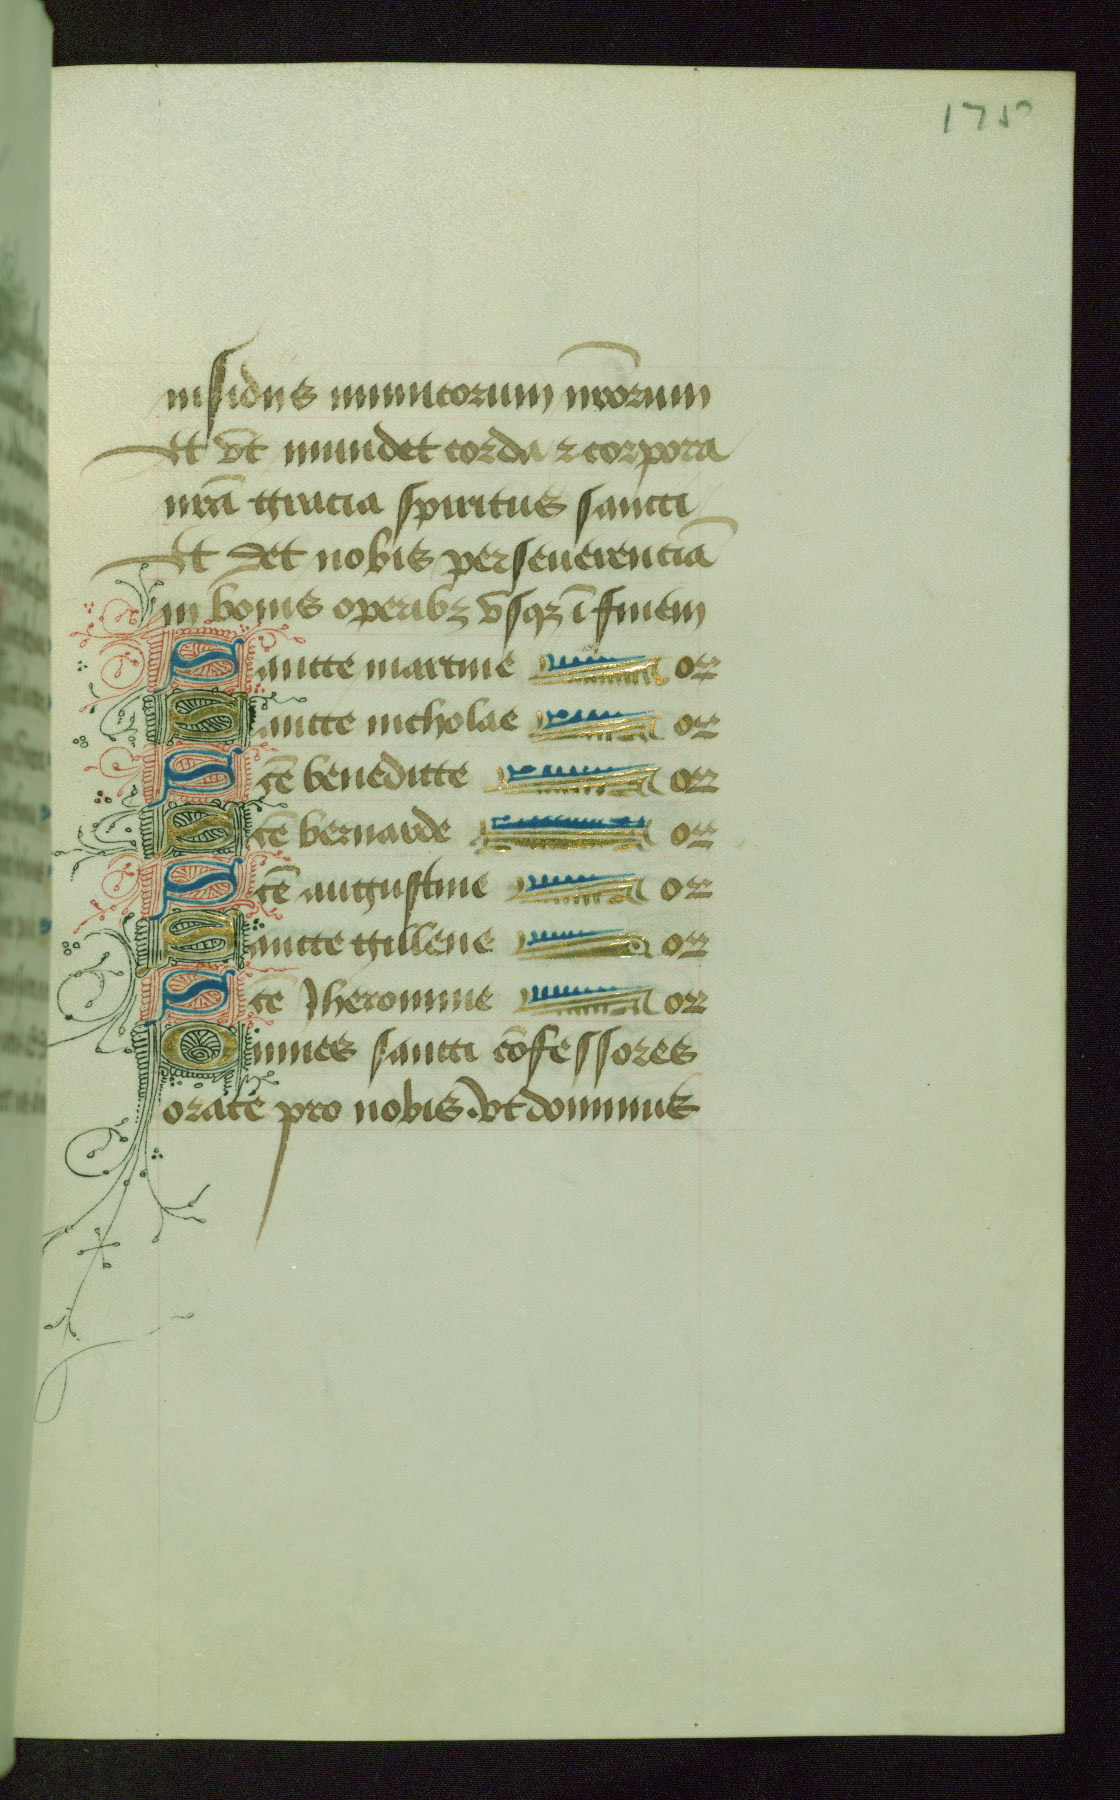 175
insidiis inimicorum nr̄orum
Et vt̄ mundet corda ⁊ corpora
nrā gracia spiritus sancti
Et det nobis perseuerenciā
in bonis operibꝫ vsqꝫ ī finem
Sancte martine or
Sancte nicholae or
Sc̄e benedicte or
Sc̄e bernarde or
Sc̄e augustine or
Sancte gillene or
Sc̄e Jheronime or
Omnes sancti cōfessores
orate pro nobis. vt dominus